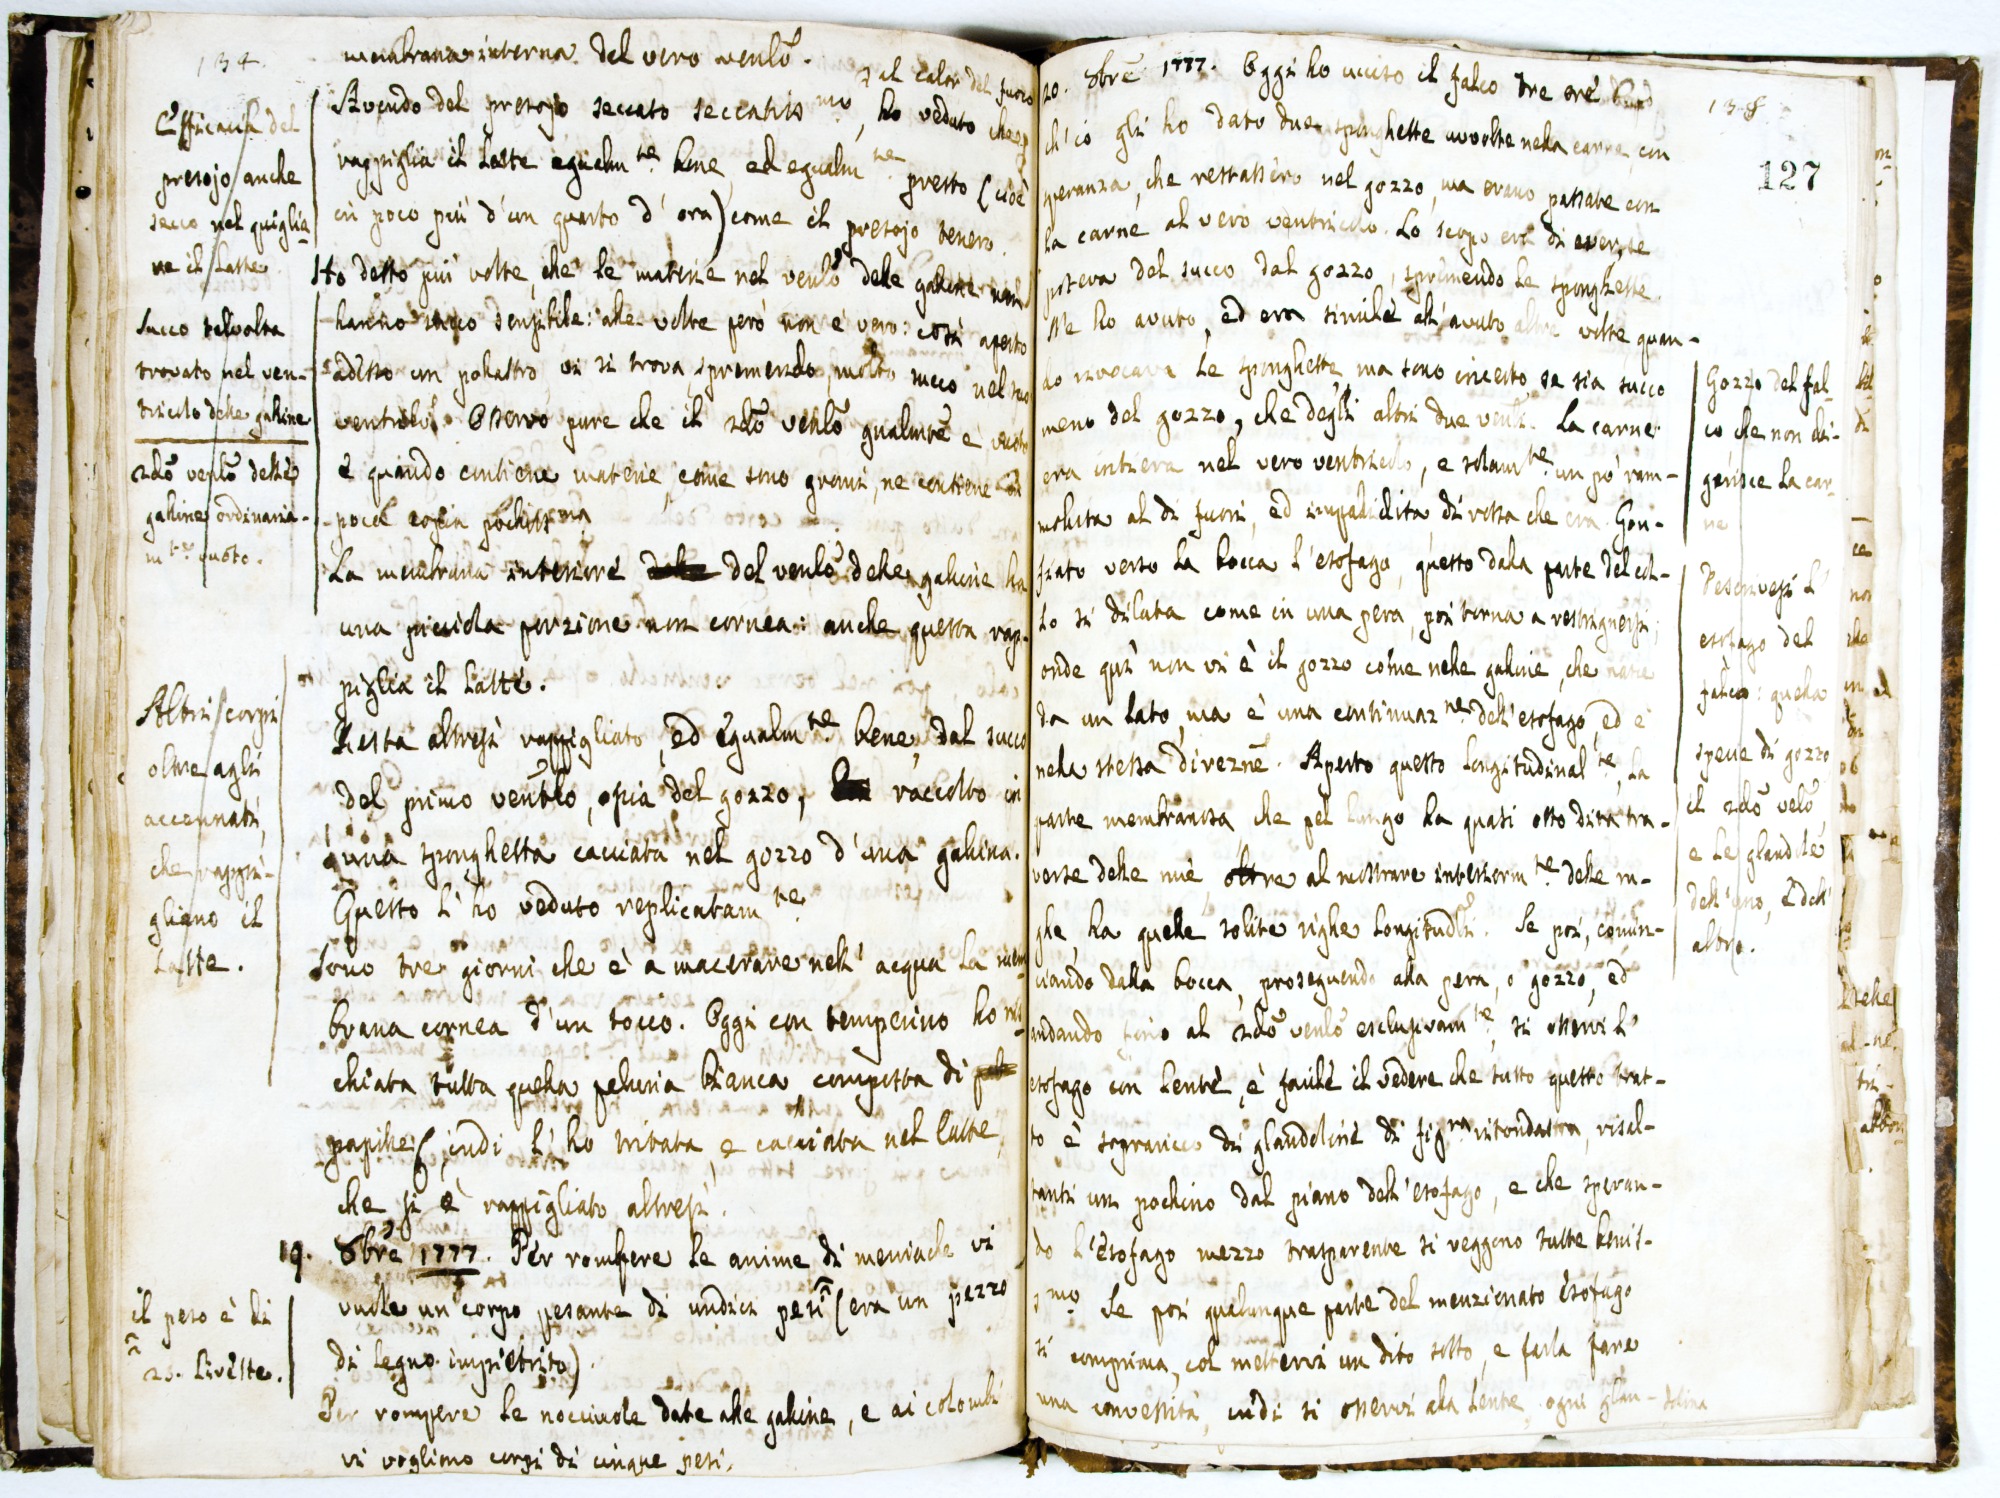 134.
membrana interna del vero ventlo.
Avendo del presojo seccato seccatiss.mo, al calor del fuoco ho veduto che
rappiglia il latte egualm.te bene, ed egualm.te presto (cioè
in poco più d'un quarto d'ora) come il presojo tenero.
Ho detto più volte, che le materie nel ventlo delle galline non
hanno succo sensibile: alle volte però non è vero: così aperto
adesso un pollastro vi si trova, spremendo, molto succo nel suo
ventriclo. Osservo pure che il 2do ventlo gualmte è vuoto
e quando contiene materie come sono grani, ne contiene in
poca copia pochiss.ma
La membrana interiore del ventlo delle galline ha
una picciola porzione non cornea: anche questa rap-
piglia il latte.
Resta altresì rappigliato, ed egualm.te bene, dal succo
del primo ventlo, o sia del gozzo, raccolto in
una sponghetta cacciata nel gozzo d'una gallina.
Questo l'ho veduto replicatam.te
Sono tre giorni che è a macerare nell'acqua la mem
brana cornea d'un tocco. Oggi con temperino ho ras-
chiata tutta quella peluria bianca composta di
papille, indi l'ho tritata e cacciata nel latte,
che si è rappigliato altresì.
19. 8bre 1777. Per rompere le anime di meniacle vi
vuole un corpo pesante di undici pesi (era un pezzo
di legno impietrito).
Per rompere le nocciuole date alle galline, e ai colombi
vi vogliono corpi di cinque pesi.
Efficacia del
presojo anche
secco nel quiglia-
re il latte
Succo talvolta
trovato nel ven-
triculo delle galline
2do ventlo delle
galline ordinaria-
m.te vuoto.
Altri corpi
oltre agli
accennati,
che rappi-
gliano il
latte.
il peso è di
25. livette.
138
127
20. 8bre 1777. Oggi ho ucciso il falco tre ore
ch'io gli ho dato due sponghette avvolte nella carne, con
speranza, che restassero nel gozzo, ma erano passate con
la carne al vero ventricolo. Lo scopo era di aver, se
poteva del succo dal gozzo, spremendo le sponghette.
Ne ho avuto, ed era simile all'avuto altre volte quan-
do rivocava le sponghette, ma sono incerto se sia succo
meno del gozzo, che degli altri due ventli. La carne
era intiera nel vero ventricolo, e solam.te un pò ram-
mollita al di fuori, ed impallidita di rossa che era. Gon-
fiato verso la bocca l'esofago, questo dalla parte del col-
lo si dilata come in una pera, poi torna a restrignersi;
onde qui non vi è il gozzo come nelle galline, che nasce
da un lato, ma è una continuaz.ne dell'esofago, ed è
nella stessa direzne. Aperto questo longitudinal.te, la
parte membranosa, che pel lungo ha quasi otto dita tra-
verse delle mie, oltre al mostrare interiorm.te delle ru-
ghe, ha quelle solite righe longitudli. Se poi, comin-
ciando dalla bocca, proseguendo alla pera, o gozzo, ed
andando sino al 2do ventlo esclusivam.te, si osservi l'
esofago con lente, è facile il vedere che tutto questo trat-
to è sopraricco di glandoline di fig.ra ritondastra, risal-
tanti un pochino dal piano dell'esofago, e che speran-
do l'esofago mezzo trasparente si veggono tutte benis-
s.mo Se poi qualunque parte del menzionato esofago
si comprima, col mettervi un dito sotto, e farla fare
una convessità, indi si osservi alla lente, ogni glan-dolina
Gozzo del fal-
co che non di-
gerisce la car-
ne
Descrivesi l'
esofago del
falco: quella
specie di gozzo
il 2do velo,
e le glandole
dell'uno, e dell'
altro.